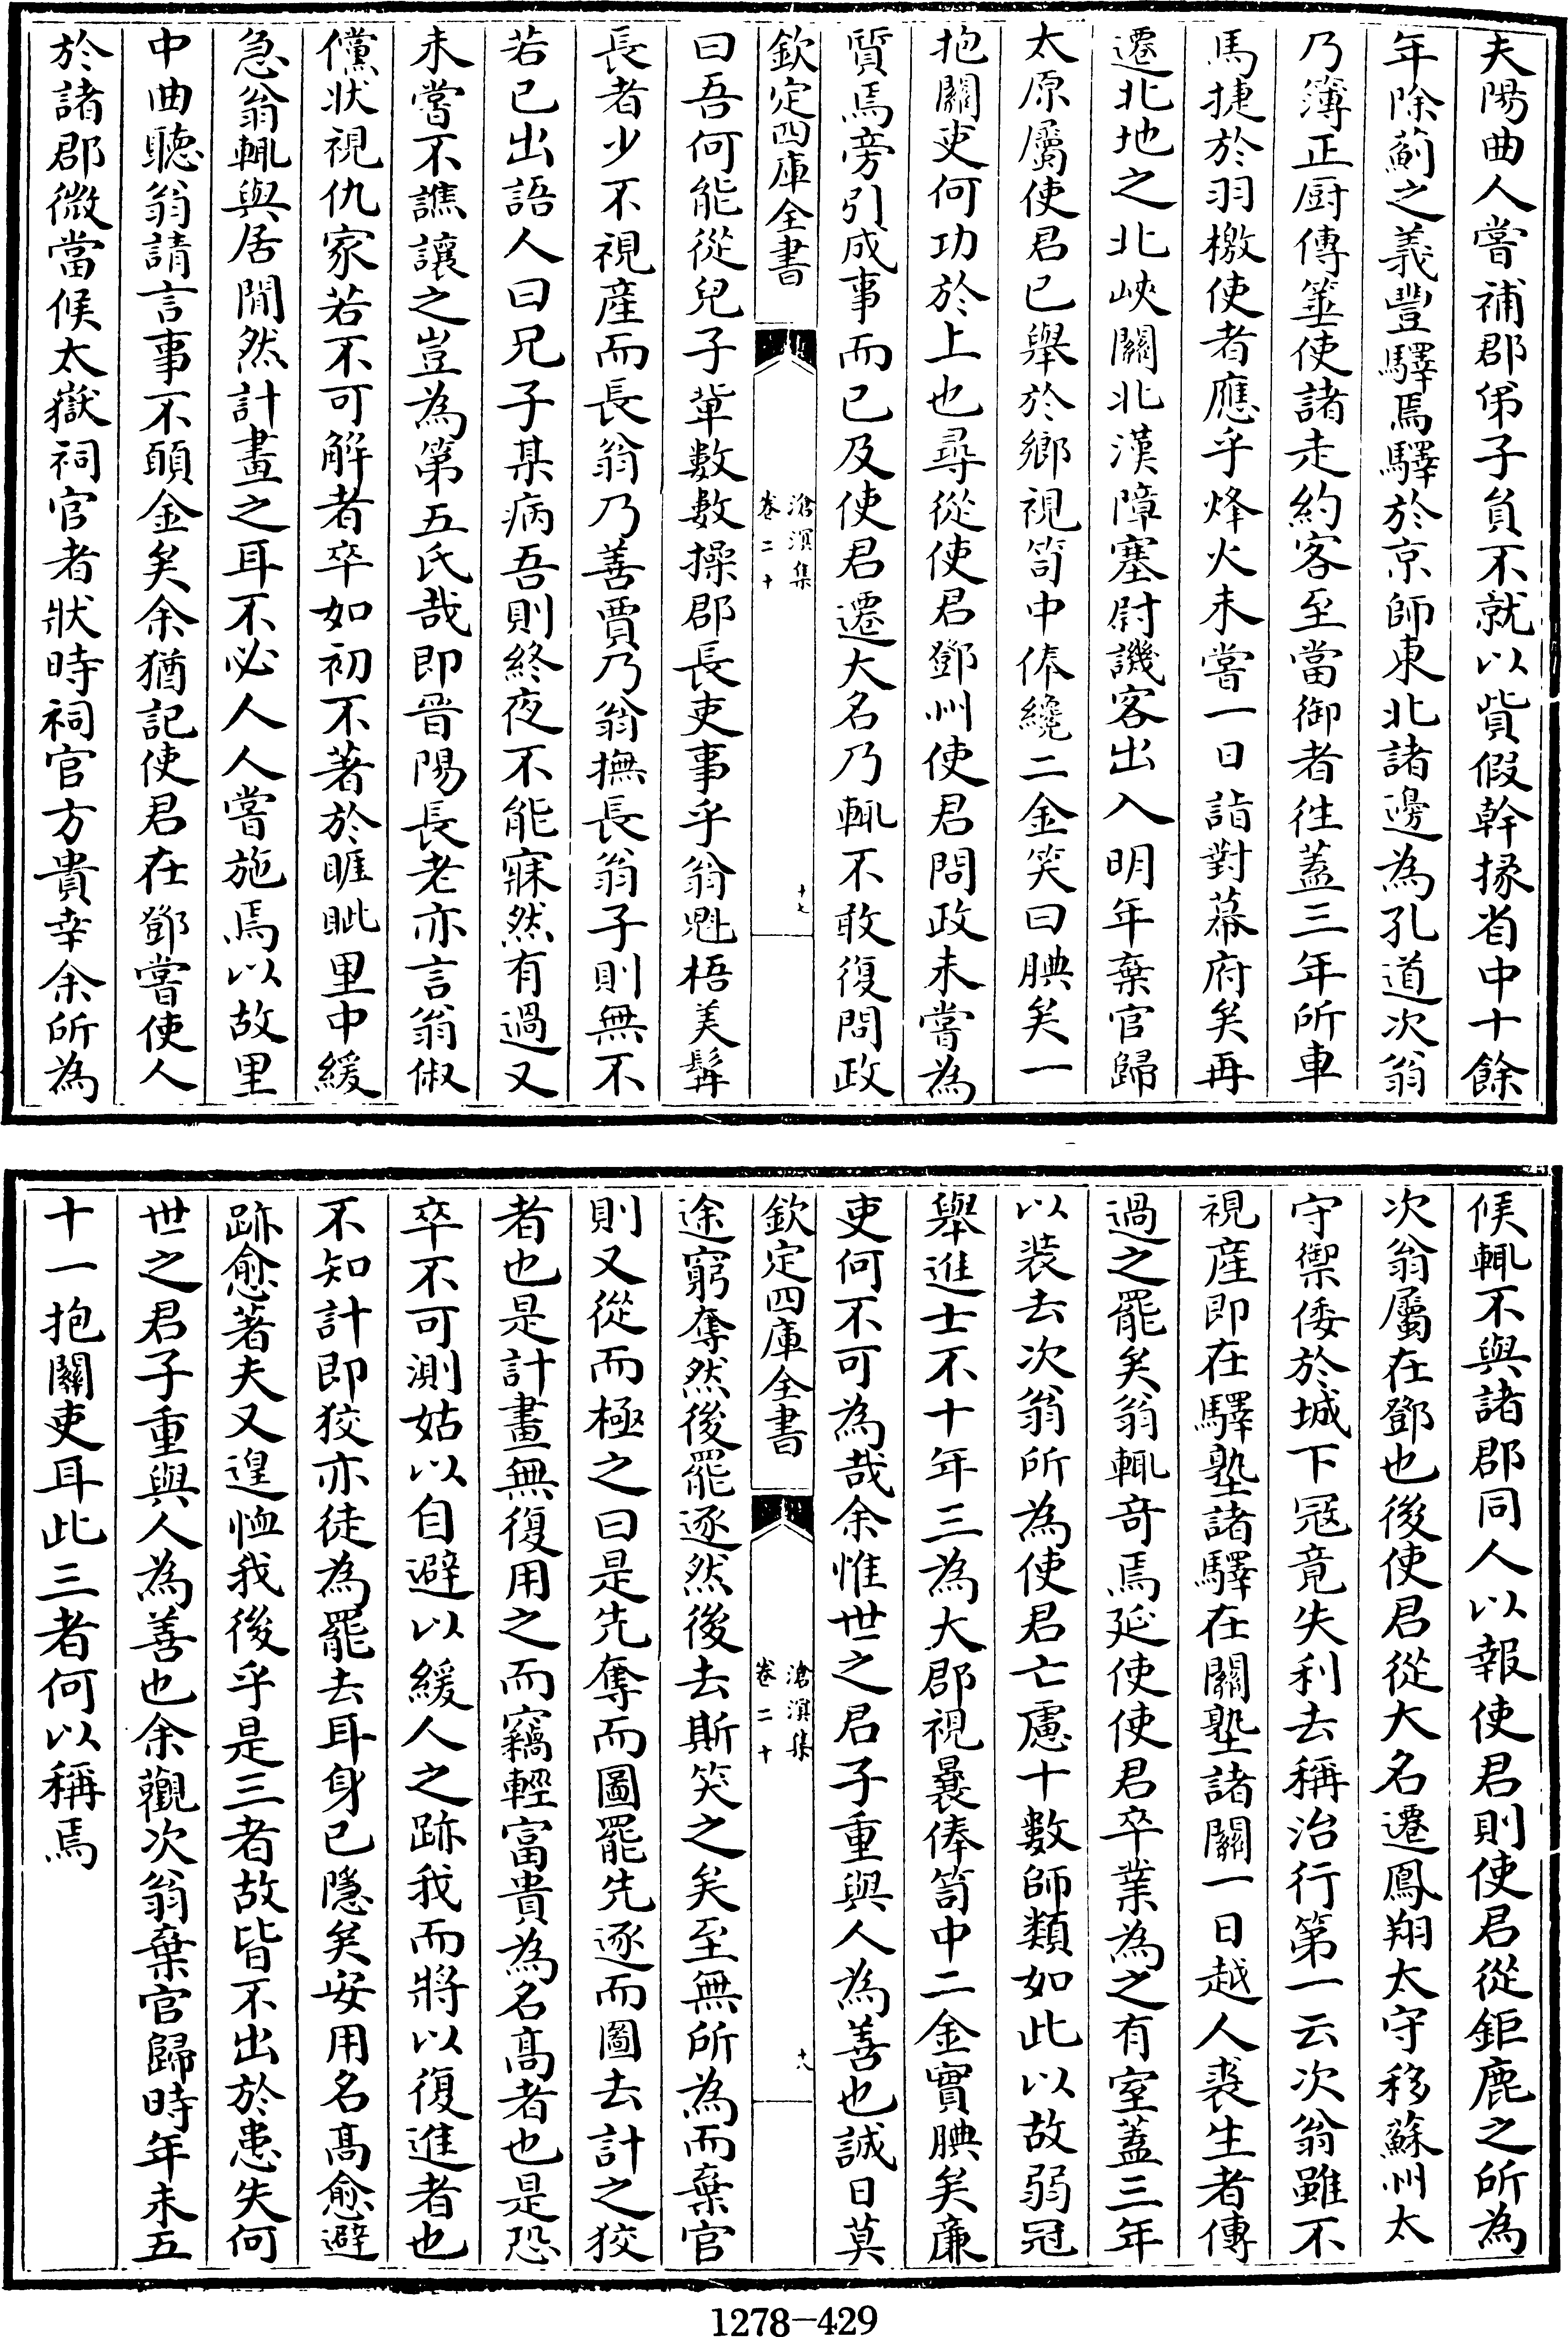 夫陽曲人嘗補郡弟子員不就以貲假幹掾省中十餘
年除薊之義豐驛焉驛於京師東北諸邊為孔道次翁
乃簿正厨傳箠使諸走約客至當御者徃蓋三年所車
馬捷於羽檄使者應乎烽火未嘗一日詣對幕府矣再
遷北地之北峽關北漢障塞尉譏客出入明年棄官歸
太原屬使君已舉於鄉視笥中俸纔二金笑曰腆矣一
抱關吏何功於上也尋從使君鄧州使君問政未嘗為
質焉旁引成事而已及使君遷大名乃輒不敢復問政
欽定四庫全書
滄溟集
卷二十
十七
曰吾何能從兒子軰數數操郡長吏事乎翁魁梧美髯
長者少不視産而長翁乃善賈乃翁撫長翁子則無不
若已出語人曰兄子某病吾則終夜不能寐然有過又
未嘗不譙讓之豈為第五氏哉即晉陽長老亦言翁俶
儻狀視仇家若不可解者卒如初不著於睚眦里中緩
急翁輒與居間然計畫之耳不必人人嘗施焉以故里
中曲聽翁請言事不頋金矣余猶記使君在鄧嘗使人
於諸郡微當候太嶽祠官者狀時祠官方貴幸余所為
候輒不與諸郡同人以報使君則使君從鉅鹿之所為
次翁屬在鄧也後使君從大名遷鳳翔太守移蘇州太
守禦倭於城下冦竟失利去稱治行第一云次翁雖不
視産即在驛塾諸驛在關塾諸關一日越人裘生者傳
過之罷矣翁輒奇焉延使使君卒業為之有室蓋三年
以装去次翁所為使君亡慮十數師類如此以故弱冠
舉進士不十年三為大郡視曩俸笥中二金實腆矣廉
吏何不可為哉余惟世之君子重與人為善也誠日莫
欽定四庫全書
滄溟集
卷二十
十八
途窮奪然後罷逐然後去斯笑之矣至無所為而棄官
則又從而極之曰是先奪而圖罷先逐而圖去計之狡
者也是計畫無復用之而竊輕富貴為名髙者也是恐
卒不可測姑以自避以緩人之跡我而將以復進者也
不知計即狡亦徒為罷去耳身已隱矣安用名髙愈避
跡愈著夫又遑恤我後乎是三者故皆不出於患失何
世之君子重與人為善也余觀次翁棄官歸時年未五
十一抱關吏耳此三者何以稱焉
1278-429